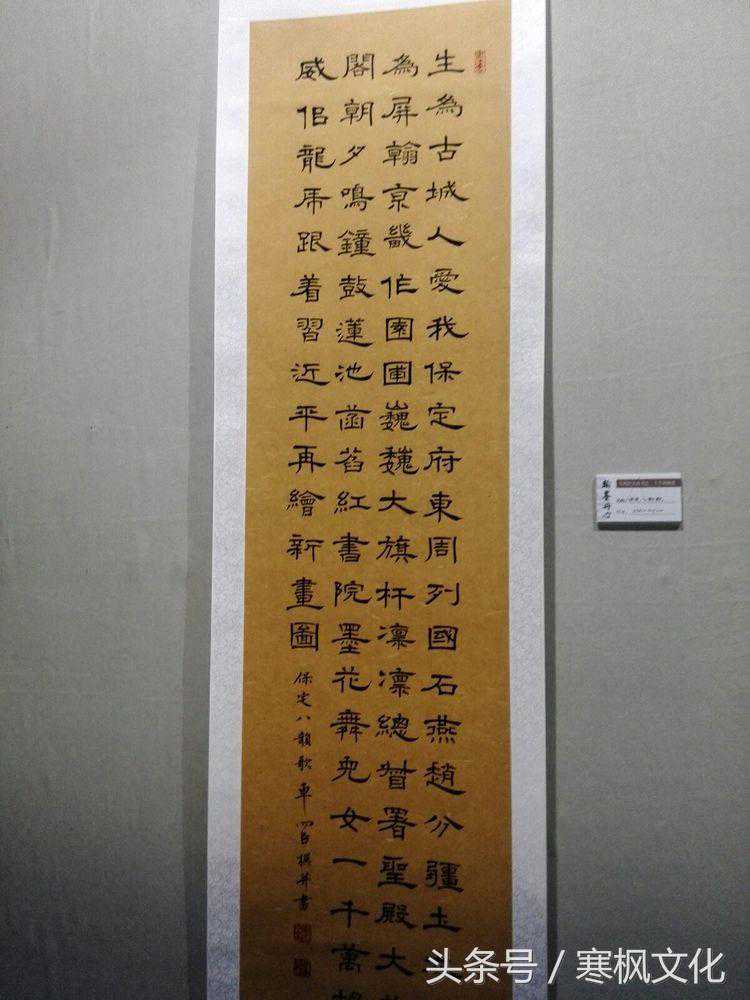 生為古城人愛我保定府東周列國石燕趙分疆土
為屏翰京畿作園圃巍巍大旗杆凜凜總督署聖殿大
閣朝夕鳴鐘鼓蓮池菡萏紅書院墨花舞兒女一千萬
威佀龍虎跟着習近平再繪新畫圖
保定八韻歌 車 撰并書
翰墨丹心
头条号 / 寒枫文化